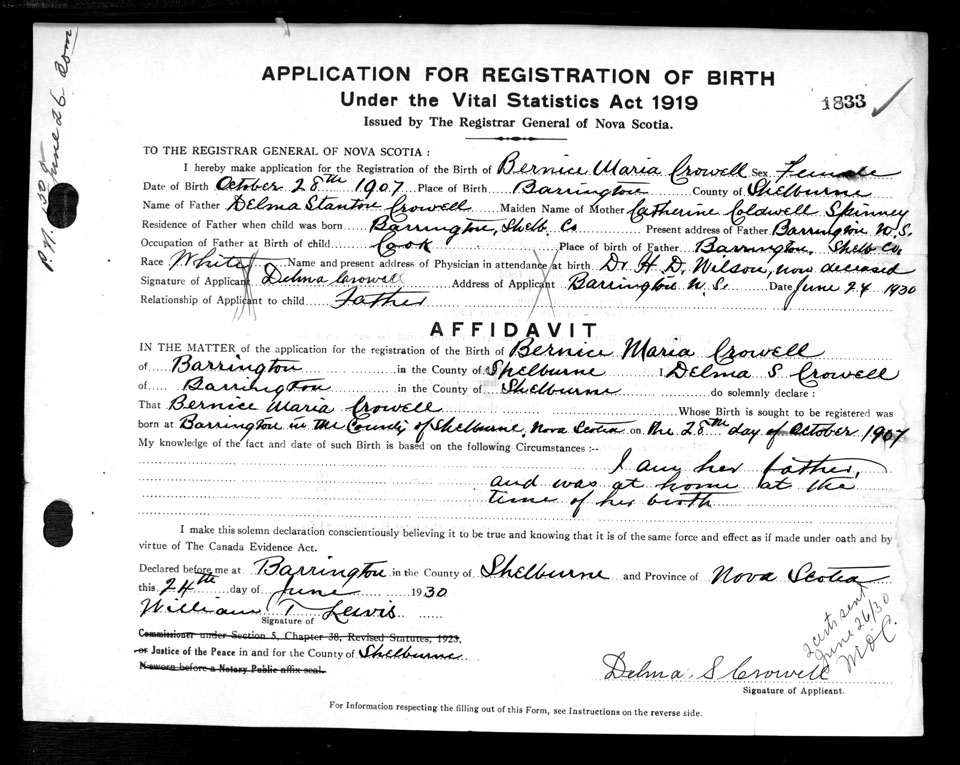 P.N. 1508 June 26 Dom
APPLICATION FOR REGISTRATION OF BIRTH
Under the Vital Statistics Act 1919
1833
Issued by The Registrar General of Nova Scotia.
TO THE REGISTRAR GENERAL OF NOVA SCOTIA :
I hereby make application for the Registration of the Birth of Bernice Maria Crowell Sex Female
Date of Birth October 28th 1907 Place of Birth Barrington County of Shelburne
Name of Father Delma Stanton Crowell Maiden Name of Mother Catherine Coldwell Skinney
Residence of Father when child was born Barrington, Shelb. Co Present address of Father Barrington N.S.
Occupation of Father at Birth of child Cook Place of birth of Father Barrington, Shelb Co.
Race White Name and present address of Physician in attendance at birth Dr. H. D. Wilson, now deceased
Signature of Applicant Delma Crowell Address of Applicant Barrington N.S. Date June 24 1930
Relationship of Applicant to child Father
AFFIDAVIT
IN THE MATTER of the application for the registration of the Birth of Bernice Maria Crowell
of Barrington in the County of Shelburne I Delma S Crowell
of Barrington in the County of Shelburne do solemnly declare :
That Bernice Maria Crowell Whose Birth is sought to be registered was
born at Barrington in the County of Shelburne, Nova Scotia on the 28th day of October 1907
My knowledge of the fact and date of such Birth is based on the following Circumstances :--
I am her father,
and was at home at the
time of her birth
I make this solemn declaration conscientiously believing it to be true and knowing that it is of the same force and effect as if made under oath and by
virtue of The Canada Evidence Act.
Declared before me at Barrington in the County of Shelburne and Province of Nova Scotia
this 24th day of June 1930
William T Lewis
Signature of
Commissioner under Section 5, Chapter 38, Revised Statutes, 1923,
or Justice of the Peace in and for the County of Shelburne
If sworn before a Notary Public affix seal.
2 certs sent
June 26/30
Delma S Crowell
Signature of Applicant.
For Information respecting the filling out of this Form, see Instructions on the reverse side.